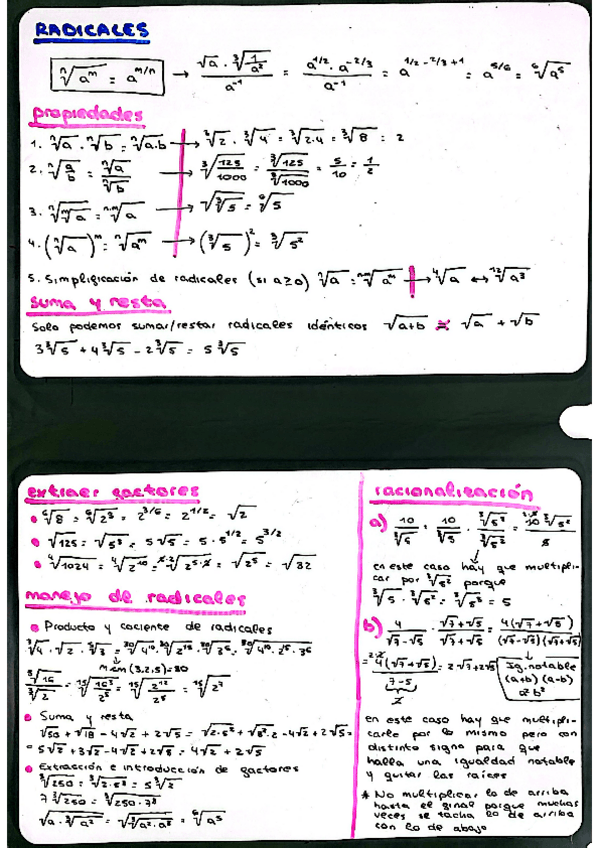 RADICALES
ⁿ√(aᵐ) = a^(m/n) → (√a · ³√(1/a²))/a⁻¹ = (a^(1/2) · a^(-2/3))/a⁻¹ = a^(1/2 - 2/3 + 1) = a^(5/6) = ⁶√a⁵
propiedades
1. ⁿ√a · ⁿ√b = ⁿ√(a·b) → ³√2 · ³√4 = ³√(2·4) = ³√8 = 2
2. ⁿ√(a/b) = ⁿ√a/ⁿ√b → ³√(125/1000) = ³√125/³√1000 = 5/10 = 1/2
3. ⁿ√(ᵐ√a) = ⁿ·ᵐ√a → √(³√5) = ⁶√5
4. (ⁿ√a)ᵐ = ⁿ√(aᵐ) → (³√5)² = ³√5²
5. Simplificación de radicales (si a≥0) ⁿ√a = ⁿᵐ√(aᵐ) → ⁴√a ↔ ¹²√a³
suma y resta
Solo podemos sumar/restar radicales idénticos √(a+b) ≠ √a + √b
3³√5 + 4³√5 - 2³√5 = 5³√5
extraer factores
⁶√8 = ⁶√2³ = 2^(3/6) = 2^(1/2) = √2
√125 = √5³ = 5√5 = 5 · 5^(1/2) = 5^(3/2)
⁴√1024 = ⁴√2¹⁰ = = √2⁵ = √32
manejo de radicales
Producto y cociente de radicales
³√4 · √2 · ⁵√3 = ³⁰√4¹⁰ · ³⁰√2¹⁵ · ³⁰√3⁶ =
mcm (3,2,5) = 30
Suma y resta
√50 + √18 - 4√2 + 2√5 = √(2·5²) + - 4√2 + 2√5 =
= 5√2 + 3√2 - 4√2 + 2√5 = 4√2 + 2√5
Extracción e introducción de factores
³√250 = ³√(2·5³) = 5³√2
7³√250 = ³√(250·7³)
racionalización
a)
en este caso hay que multipli-
car por ³√5² porque
³√5 · ³√5² = ³√5³ = 5
b) 4/(√7 - √5) · (√7 + √5)/(√7 + √5) = 4(√7 + √5)/((√7 - √5)(√7 + √5))
= 4(√7 + √5)/(7 - 5) = 2√7 + 2√5
2
Ig. notable
(a+b) (a-b)
a² b²
en este caso hay que multipli-
carlo por lo mismo pero con
distinto signo para que
halla una igualdad notable
y quitar las raíces
* No multiplicar lo de arriba
hasta el final porque muchas
veces se tacha lo de arriba
con lo de abajo